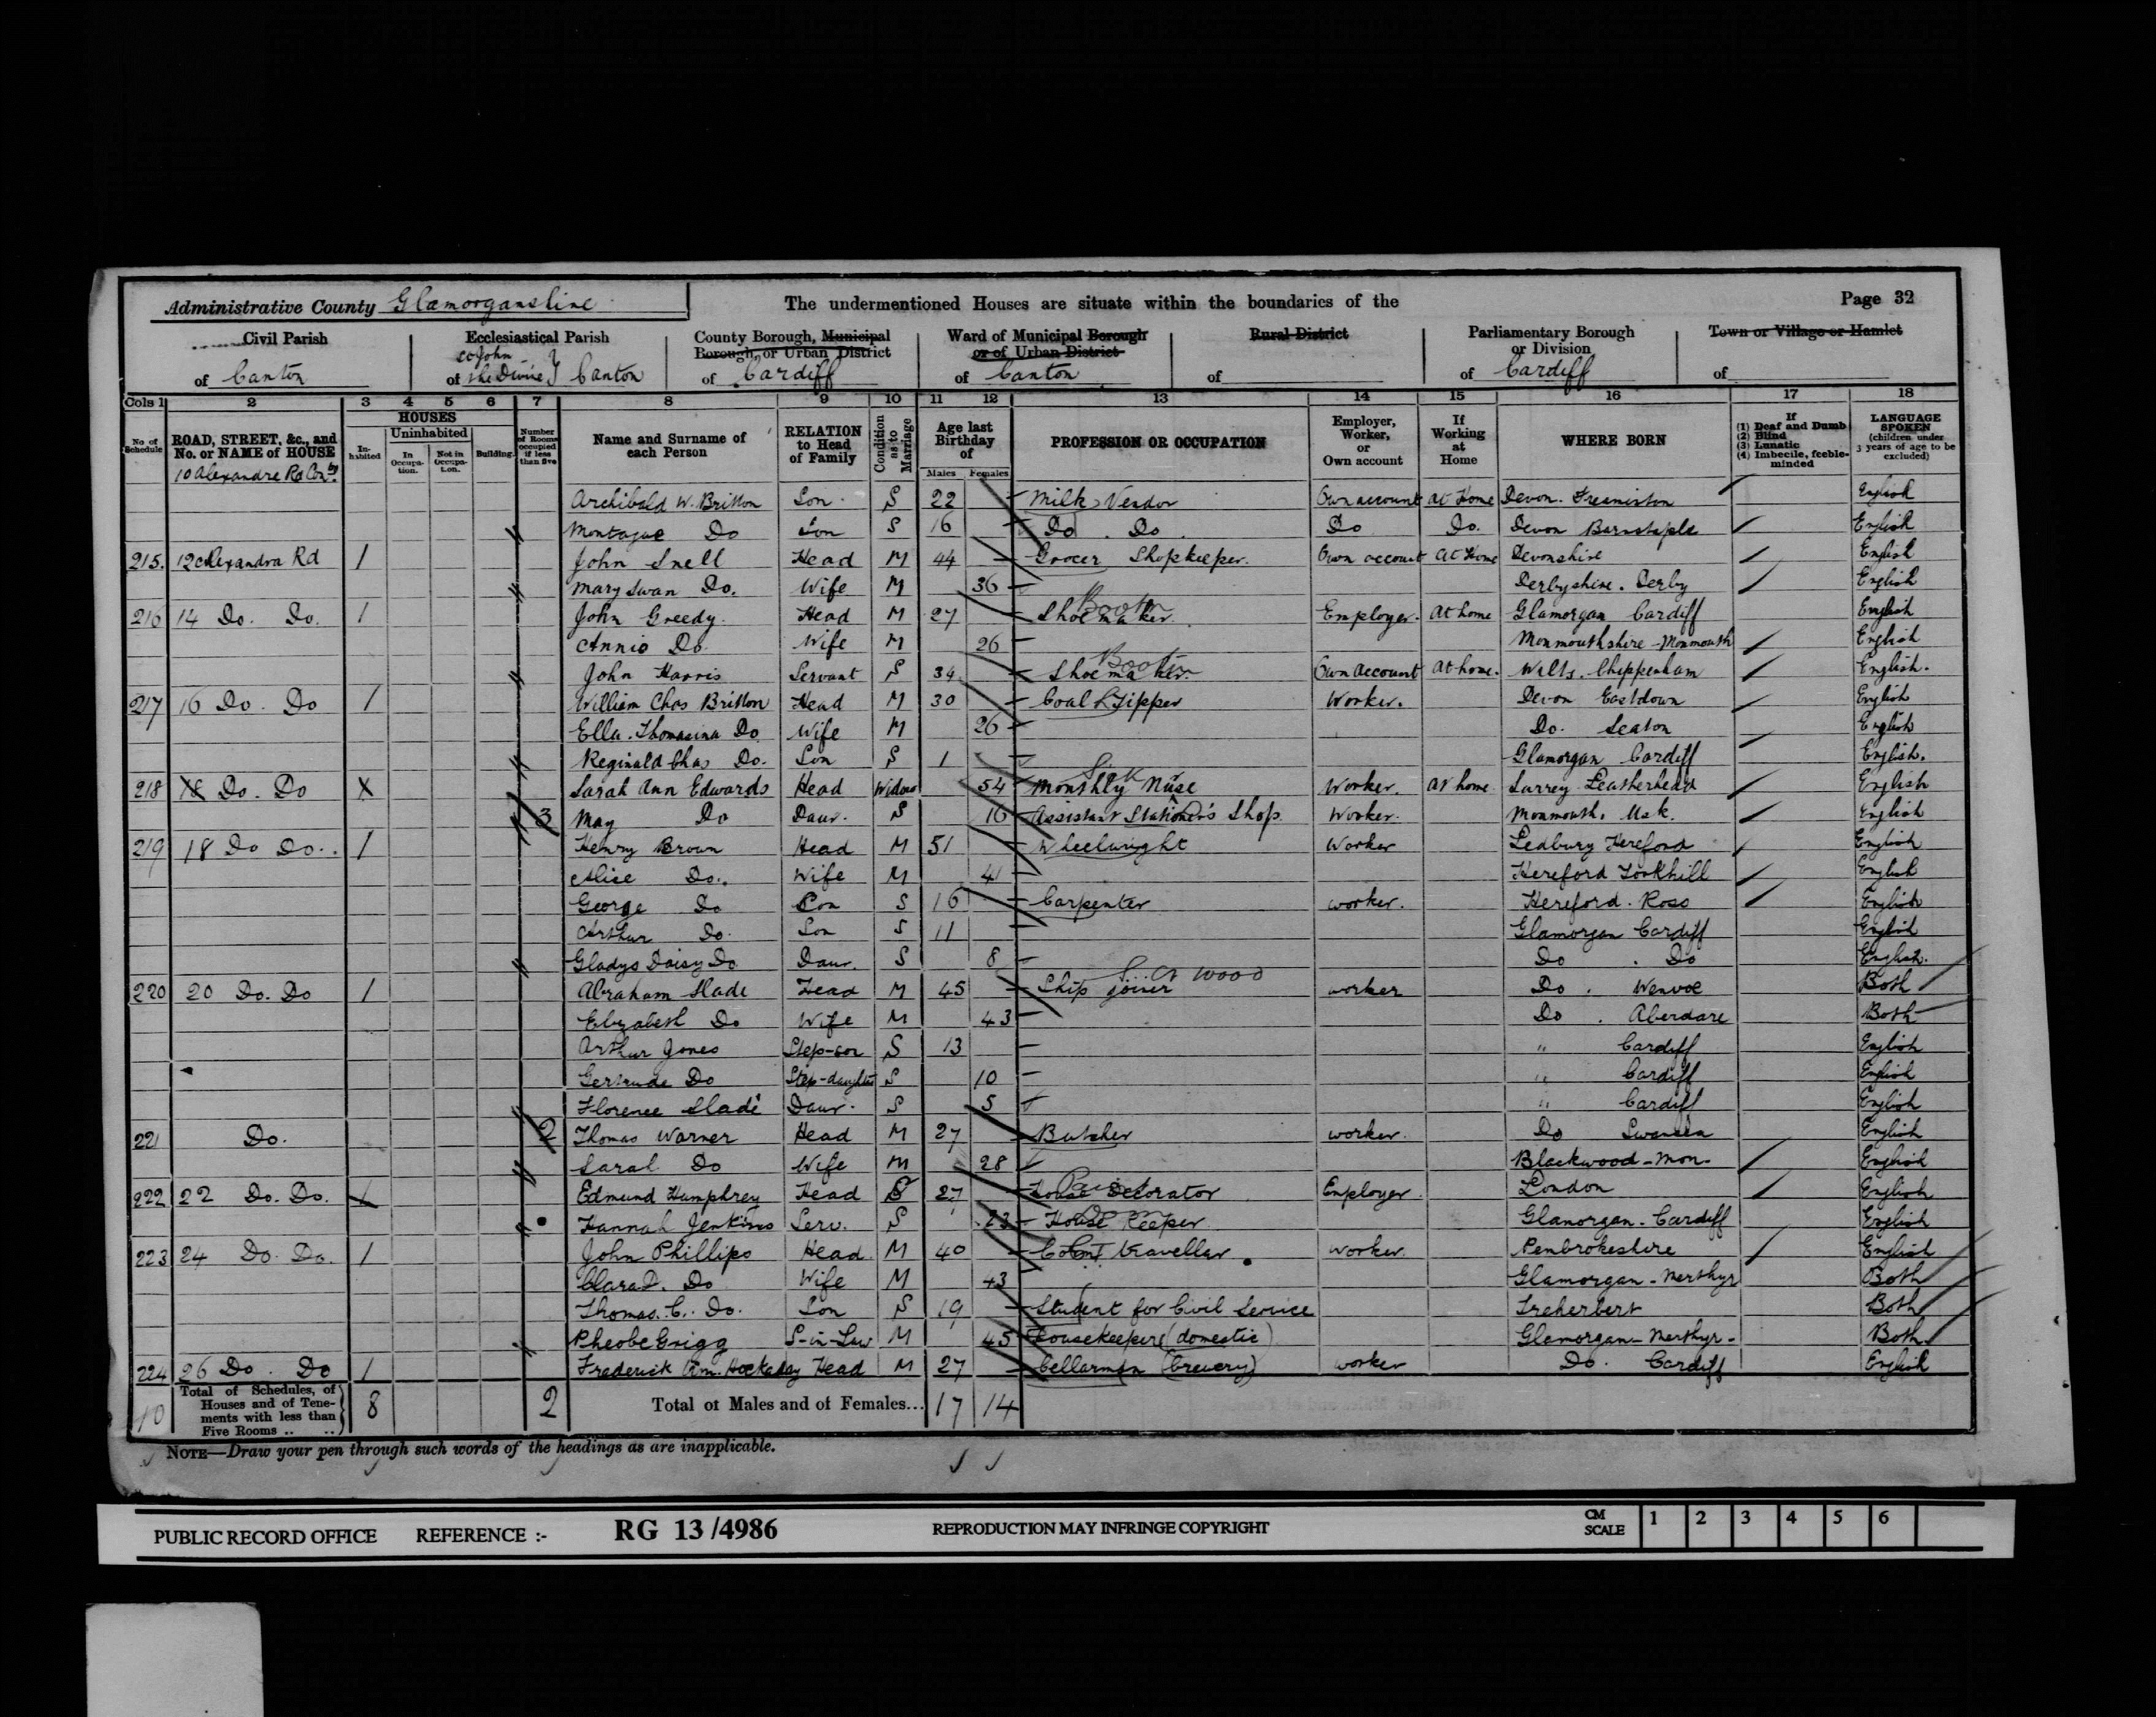 Administrative County Glamorganshire
The undermentioned Houses are situate within the boundaries of the
Page 32
Civil Parish
of Canton
Ecclesiastical Parish
of St John the Divine } Canton
County Borough, Municipal Borough, or Urban District
of Cardiff
Ward of Municipal Borough or of Urban District
of Canton
Rural District
of
Parliamentary Borough or Division
of Cardiff
Town or Village or Hamlet
of
Cols 1 2 3 4 5 6 7 8 9 10 11 12 13 14 15 16 17 18
No. of Schedule
ROAD, STREET, &c., and No. or NAME of HOUSE
HOUSES
In-habited
Uninhabited
In Occupa-tion.
Not in Occupa-tion.
Building.
Number of Rooms occupied if less than five
Name and Surname of each Person
RELATION to Head of Family
Condition as to Marriage
Age last Birthday of
Males Females
PROFESSION OR OCCUPATION
Employer, Worker, or Own account
If Working at Home
WHERE BORN
If
(1) Deaf and Dumb
(2) Blind
(3) Lunatic
(4) Imbecile, feeble-minded
LANGUAGE SPOKEN
(children under 3 years of age to be excluded)
10 Alexandra Rd
Archibald W. Britton Son S 22 Milk Vendor Own account At Home Devon. English
Montague Do Son S 16 Do Do Do Do. Devon Barnstaple English
215. 12 Alexandra Rd 1 John Snell Head M 44 Grocer Shopkeeper. Own account At Home Devonshire English
Mary Swan Do. Wife M 36 Derbyshire. Derby English
216 14 Do. Do. 1 John Greedy. Head M 27 Shoemaker. Boot Employer. At home Glamorgan Cardiff English
Annie Do. Wife M 26 Monmouthshire - Monmouth English
John Harris Servant S 34 Shoemaker. Boot Own account At home. Wilts. Chippenham English.
217 16 Do. Do 1 William Chas Britton Head M 30 Coal Tipper Worker. Devon Eastdown English
Ella. Thomasina Do Wife M 26 Do. Seaton English
Reginald Chas Do. Son S 1 Glamorgan Cardiff English.
218 18 Do. Do X Sarah Ann Edwards Head Widow 54 Monthly Nurse Sick Worker. At home Surrey Leatherhead English
3 May Do Daur. S 16 Assistant Stationer's Shop. Worker. Monmouth. Usk. English
219 18 Do Do. 1 Henry Brown Head M 51 Wheelwright Worker Ledbury Hereford English
Alice Do. Wife M 41 Hereford English
George Do Son S 16 Carpenter worker. Hereford. Ross English
Arthur Do. Son S 11 Glamorgan Cardiff English
Gladys Daisy Do Daur. S 8 Do. Do English.
220 20 Do. Do 1 Abraham Slade Head M 45 Ship joiner wood worker Do. Wenvoe Both
Elizabeth Do Wife M 43 Do. Aberdare Both
Arthur Jones Step-son S 13 " Cardiff English
Gertrude Do Step-daughter S 10 " Cardiff English
Florence Slade Daur. S 5 " Cardiff English
221 Do. 2 Thomas Warner Head M 27 Butcher worker. Do Swansea English
Sarah Do Wife M 28 Blackwood - Mon. English
222 22 Do. Do. 1 Edmund Humphrey Head S 27 House Decorator Employer London English
Hannah Jenkins Serv. S 23 House Keeper Dom Glamorgan. Cardiff English
223 24 Do. Do. 1 John Phillips Head M 40 Coml traveller. worker. Pembrokeshire English
Clara D. Do Wife M 43 Glamorgan - Merthyr Both
Thomas. C. Do. Son S 19 Student for Civil Service Treherbert Both
Pheobe Grigg S-in-Law M 45 Housekeeper (domestic) Glamorgan - Merthyr - Both.
224 26 Do. Do 1 Frederick Wm. Hockaday Head M 27 Cellarman (brewery) worker Do. Cardiff English
10 Total of Schedules, of Houses and of Tene-ments with less than Five Rooms .. .. } 8 2 Total of Males and of Females... 17 14
NOTE—Draw your pen through such words of the headings as are inapplicable.
PUBLIC RECORD OFFICE REFERENCE :- RG 13/4986 REPRODUCTION MAY INFRINGE COPYRIGHT CM SCALE 1 2 3 4 5 6